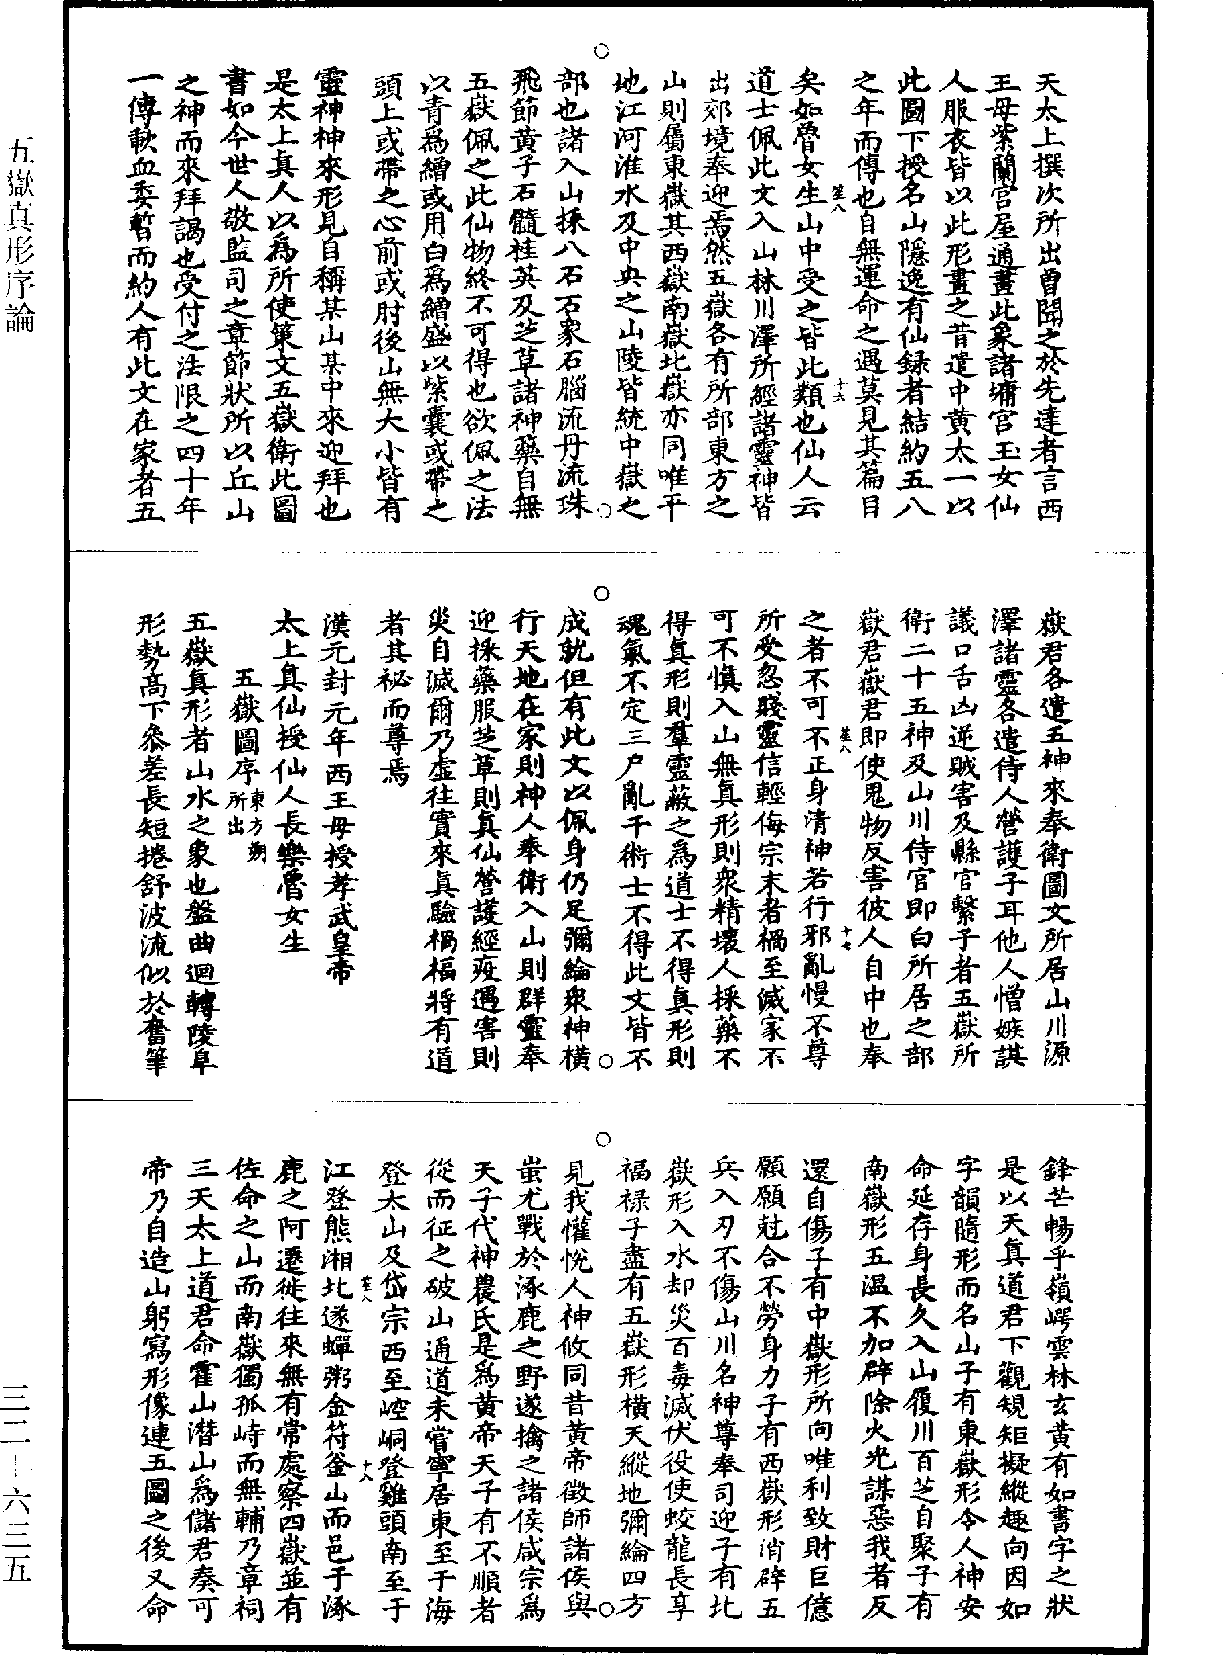 天太上撰次所出曾聞之於先達者言西
王母紫蘭宮屋通畫此象諸墉宮玉女仙
人服衣皆以此形畫之昔遣中黃太一以
此圖下授名山隱逸有仙錄者結約五八
之年而傳也自無運命之遇莫見其篇目
矣如魯女生山中受之皆此類也仙人云
道士佩此文入山林川澤所經諸靈神皆
出郊境奉迎焉然五嶽各有所部東方之
山則屬東嶽其西嶽南嶽北嶽亦同唯平
地江河淮水及中央之山陵皆統中嶽之
部也諸入山採八石石象石腦流丹流珠
飛節黃子石髓桂英及芝草諸神藥自無
五嶽佩之此仙物終不可得也欲佩之法
以青為繒或用白為繒盛以紫囊或帶之
頭上或帶之心前或肘後山無大小皆有
靈神神來形見自稱某山某中來迎拜也
是太上真人以為所使策文五嶽衛此圖
書如今世人敬監司之章節狀所以丘山
之神而來拜謁也受付之法限之四十年
一傳歃血委誓而約人有此文在家者五
嶽君各遣五神來奉衛圖文所居山川源
澤諸靈各遣侍人營護子耳他人憎嫉謀
議口舌凶逆賊害及縣官繫子者五嶽所
衛二十五神及山川侍官即白所居之部
嶽君嶽君即使鬼物反害彼人自中也奉
之者不可不正身清神若行邪亂慢不尊
所受忽賤靈信輕侮宗末者禍至滅家不
可不慎入山無真形則眾精壞人採藥不
得真形則羣靈蔽之為道士不得真形則
魂氣不定三尸亂干術士不得此文皆不
成就但有此文以佩身仍足彌綸眾神橫
行天地在家則神人奉衛入山則群靈奉
迎採藥服芝草則真仙營護經疫遇害則
災自滅爾乃虛往實來真驗禍福將有道
者其祕而尊焉
漢元封元年西王母授孝武皇帝
太上真仙授仙人長樂魯女生
五嶽圖序東方朔所出
五嶽真形者山水之象也盤曲迴轉陵阜
形勢高下參差長短捲舒波流似於奮筆
鋒芒暢乎嶺崿雲林玄黃有如書字之狀
是以天真道君下觀規矩擬縱趣向因如
字韻隨形而名山子有東嶽形令人神安
命延存身長久入山履川百芝自聚子有
南嶽形五溫不加辟除火光謀惡我者反
還自傷子有中嶽形所向唯利致財巨億
願願尅合不勞身力子有西嶽形消辟五
兵入刃不傷山川名神尊奉司迎子有北
嶽形入水却災百毒滅伏役使蛟龍長享
福祿子盡有五嶽形橫天縱地彌綸四方
見我懽悅人神攸同昔黃帝徵師諸侯與
蚩尤戰於涿鹿之野遂擒之諸侯咸宗為
天子代神農氏是為黃帝天子有不順者
從而征之破山通道未嘗寧居東至于海
登太山及岱宗西至崆峒登雞頭南至于
江登熊湘北遂蟬粥金符釜山而邑于涿
鹿之阿遷徙往來無有常處察四嶽並有
佐命之山而南嶽獨孤峙而無輔乃章祠
三天太上道君命霍山潛山為儲君奏可
帝乃自造山躬寫形像連五圖之後又命
五嶽真形序論
三二—六三五